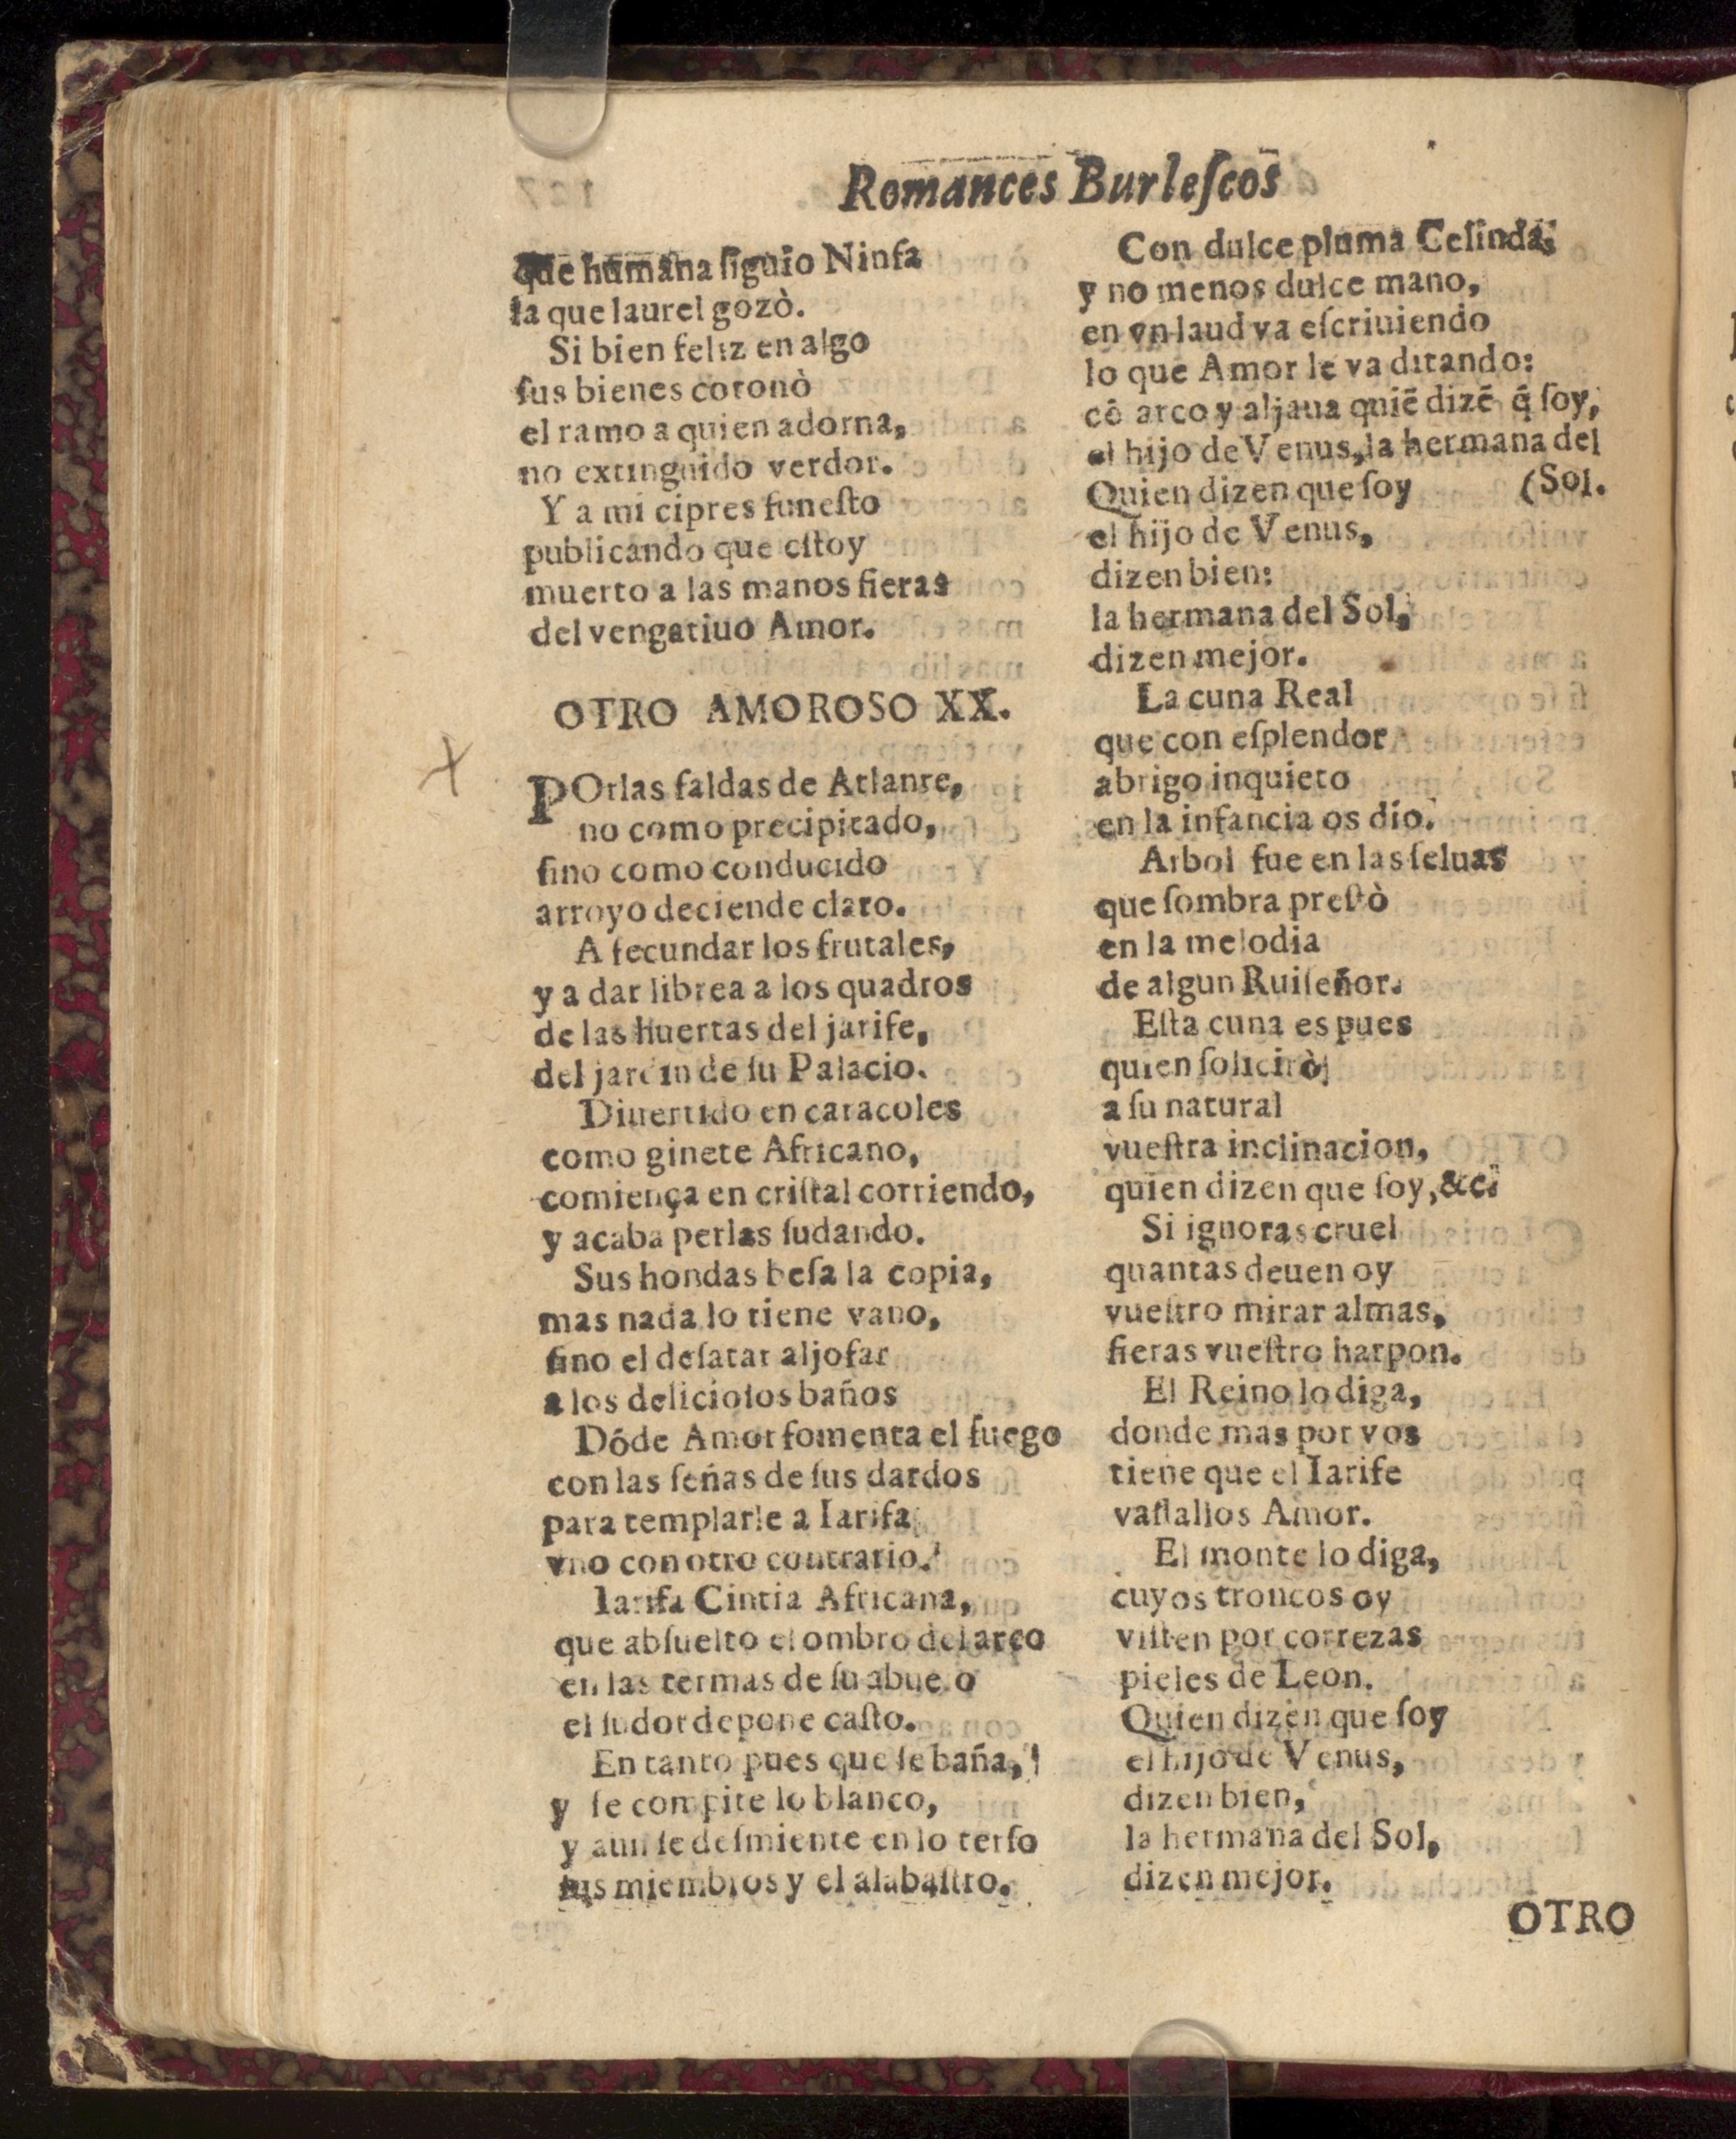 Romances Burleſcos
Que humana ſiguio Ninfa
la que laurel gozò.
Si bien feliz en algo
ſus bienes coronò
el ramo a quien adorna,
no extinguido verdor.
Y a mi cipres funeſto
publicando que eſtoy
muerto a las manos fieras
del vengatiuo Amor.
OTRO AMOROSO XX.
POr las faldas de Atlante,
no como precipitado,
ſino como conducido
arroyo deciende claro.
A fecundar los frutales,
y a dar librea a los quadros
de las huertas del jarife,
del jardin de ſu Palacio.
Diuertido en caracoles
como ginete Africano,
comiença en criſtal corriendo,
y acaba perlas ſudando.
Sus hondas beſa la copia,
mas nada lo tiene vano,
ſino el deſatar aljofar
a los delicioſos baños
Dóde Amor fomenta el fuego
con las ſeñas de ſus dardos
para templarle a Iarifa
vno con otro contrario.
Iarifa Cintia Africana,
que abſuelto el ombro del arco
en las termas de ſu abuelo
el ſudor depone caſto.
En tanto pues que ſe baña,
y ſe compite lo blanco,
y aun ſe deſmiente en lo terſo
ſus miembros y el alabaſtro.
Con dulce pluma Celinda,
y no menos dulce mano,
en vn laud va eſcriuiendo
lo que Amor le va ditando:
cõ arco y aljaua quiẽ dizẽ q̃ ſoy,
el hijo de Venus, la hermana del
(Sol.
Quien dizen que ſoy
el hijo de Venus,
dizen bien:
la hermana del Sol,
dizen mejor.
La cuna Real
que con eſplendor
abrigo inquieto
en la infancia os dio.
Arbol fue en las ſeluas
que ſombra preſtò
en la melodia
de algun Ruiſeñor.
Eſta cuna es pues
quien ſolicitò
a ſu natural
vueſtra inclinacion,
quien dizen que ſoy, &c.
Si ignoras cruel
quantas deuen oy
vueſtro mirar almas,
fieras vueſtro harpon.
El Reino lo diga,
donde mas por vos
tiene que el Iarife
vaſſallos Amor.
El monte lo diga,
cuyos troncos oy
viſten por correzas
pieles de Leon.
Quien dizen que ſoy
el hijo de Venus,
dizen bien,
la hermana del Sol,
dizen mejor.
OTRO